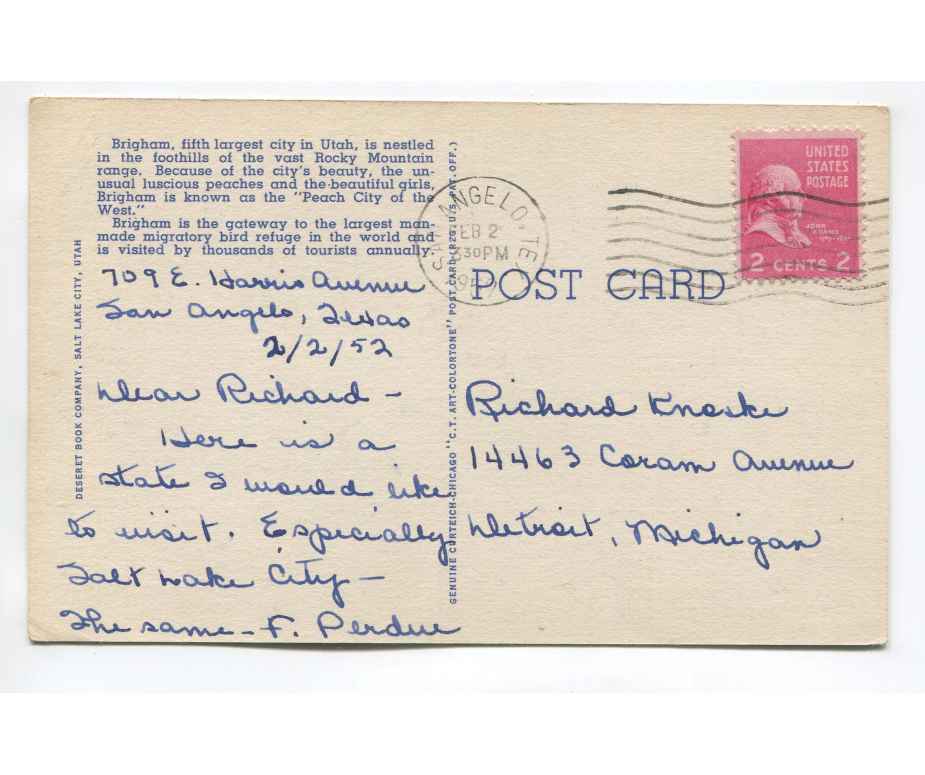 Brigham, fifth largest city in Utah, is nestled
in the foothills of the vast Rocky Mountain
range. Because of the city's beauty, the un-
usual luscious peaches and the beautiful girls,
Brigham is known as the "Peach City of the
West."
Brigham is the gateway to the largest man-
made migratory bird refuge in the world and
is visited by thousands of tourists annually.
709 E. Harris Avenue
San Angelo, Texas
2/2/52
Dear Richard -
Here is a
state I would like
to visit. Especially
Salt Lake City -
The same - F. Perdue
DESERET BOOK COMPANY, SALT LAKE CITY, UTAH
GENUINE CURTEICH-CHICAGO "C.T. ART-COLORTONE" POST CARD (REG. U.S. PAT. OFF.)
SAN ANGELO, TE
FEB 2
330 PM
POST CARD
UNITED
STATES
POSTAGE
JOHN
ADAMS
2 CENTS 2
Richard Knoske
14463 Coram Avenue
Detroit, Michigan